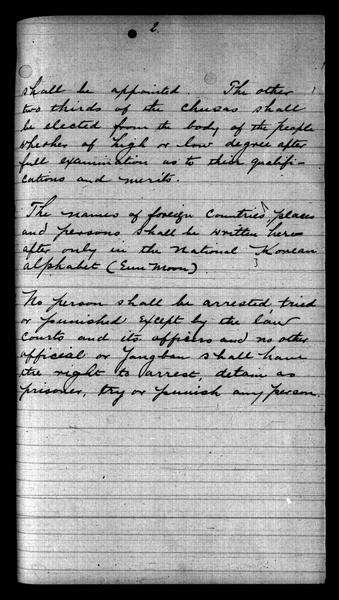 2
shall be appointed. The other
two thirds of the chusas shall
be elected from the body of the people
whether of high or low degree after
full examination as to their qualifi-
cations and merits.
The names of foreign countries, places
and persons shall be written here
after only in the National Korean
alphabet (Eun Moon).
No person shall be arrested, tried
or punished except by the law
courts and its officers and no other
official or Yangban shall have
the right to arrest, detain as
prisoner, try or punish any person.